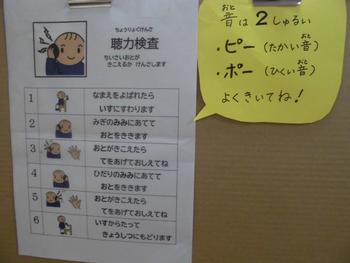 ちょうりょくけんさ
聴力検査
ちいさいおとが
きこえるか けんさします
1 なまえをよばれたら
いすにすわります
2 みぎのみみにあてて
おとをききます
3 おとがきこえたら
てをあげておしえてね
4 ひだりのみみにあてて
おとをききます
5 おとがきこえたら
てをあげておしえてね
6 いすからたって
きょうしつにもどります
おと
音は2しゅるい
・ピー(たかい音)
おと
・ポー(ひくい音)
おと
よくきいてね!